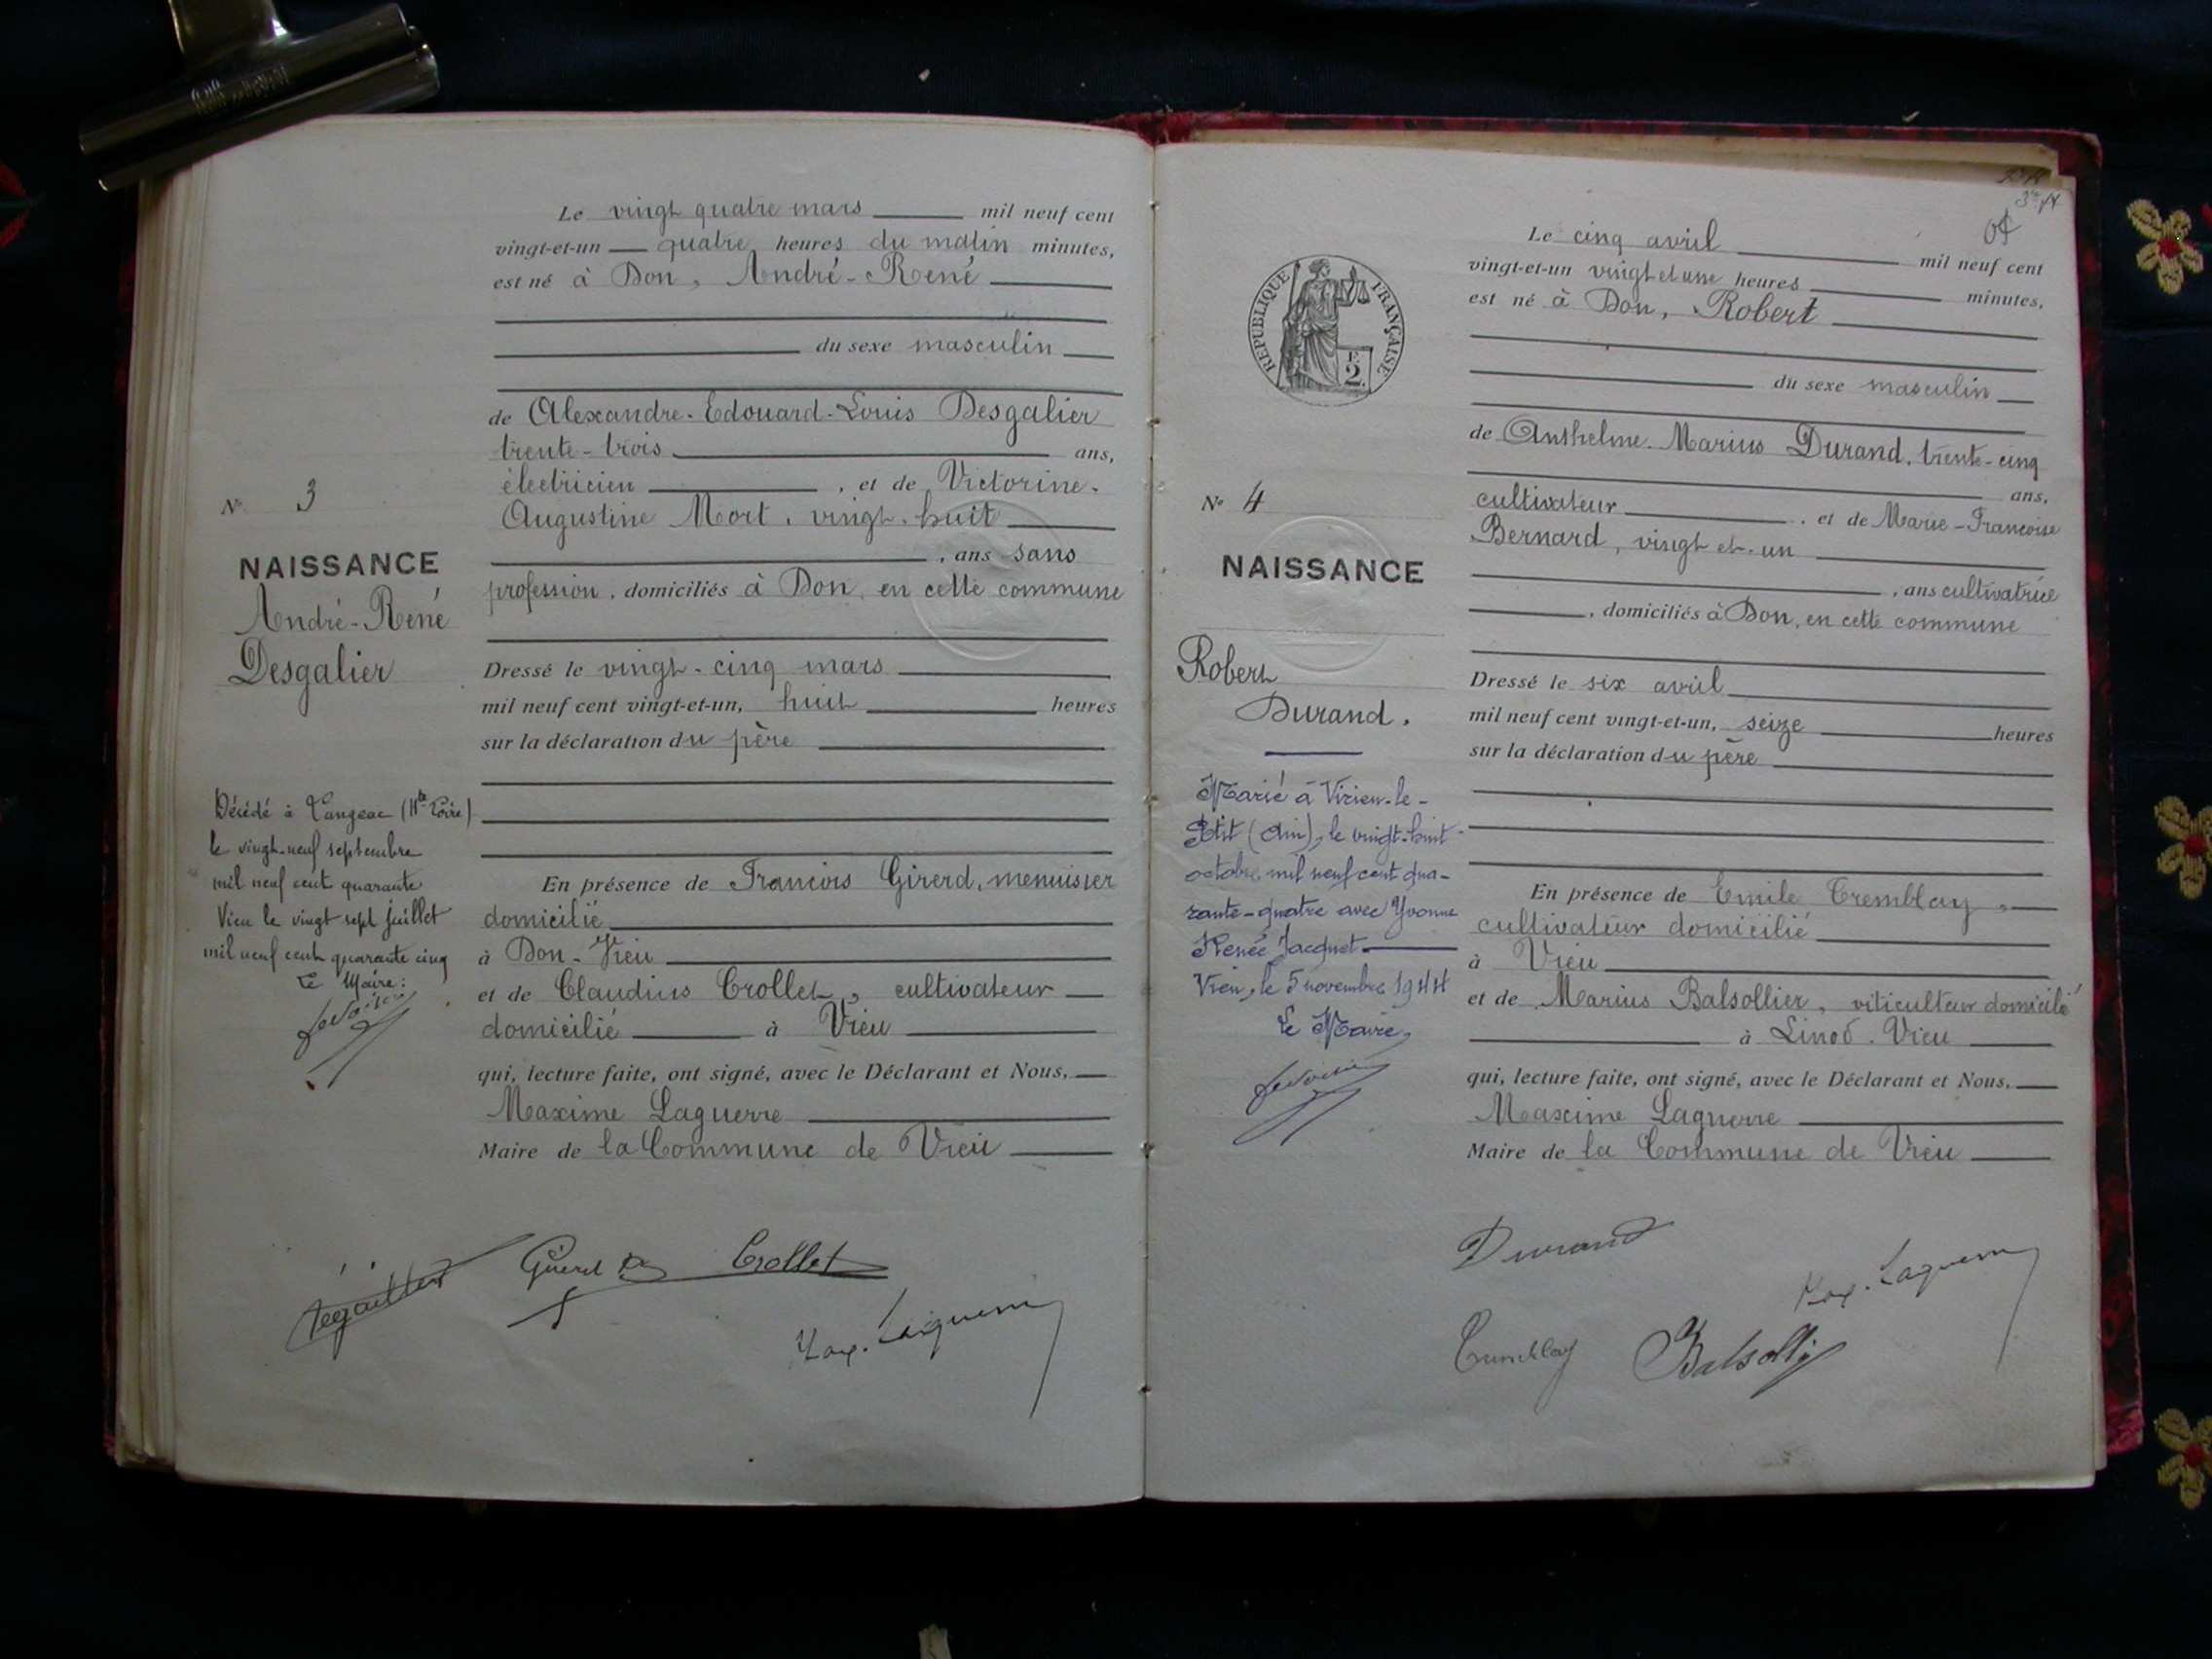 Le vingt quatre mars mil neuf cent
vingt-et-un quatre heures du matin minutes,
est né à Don, André-René
du sexe masculin
de Alexandre-Edouard-Louis Desgalier
trente-trois ans,
électricien, et de Victorine-
Augustine Mort, vingt-huit
, ans sans
profession, domiciliés à Don, en cette commune
Dressé le vingt-cinq mars
mil neuf cent vingt-et-un, huit heures
sur la déclaration du père
En présence de François Girerd, menuisier
domicilié
à Don-Vieu
et de Claudius Crollet, cultivateur
domicilié à Vieu
qui, lecture faite, ont signé, avec le Déclarant et Nous,
Maxime Laguerre
Maire de la Commune de Vieu
N° 3
NAISSANCE
André-René
Desgalier
Décédé à Langeac (Hte Loire)
le vingt-neuf septembre
mil neuf cent quarante
Vieu le vingt sept juillet
mil neuf cent quarante cinq
Le Maire:
Girerd Crollet
Max. Laguerre
Le cinq avril mil neuf cent
vingt-et-un vingt et une heures minutes,
est né à Don, Robert
du sexe masculin
de Anthelme-Marius Durand, trente-cinq
ans,
cultivateur, et de Marie-Françoise
Bernard, vingt-et-un
, ans cultivatrice
, domiciliés à Don, en cette commune
Dressé le six avril
mil neuf cent vingt-et-un, seize heures
sur la déclaration du père
En présence de Emile Tremblay,
cultivateur domicilié
à Vieu
et de Marius Balsollier, viticulteur domicilié
à Linod. Vieu
qui, lecture faite, ont signé, avec le Déclarant et Nous,
Maxime Laguerre
Maire de la Commune de Vieu
REPUBLIQUE FRANÇAISE
F.
2
N° 4
NAISSANCE
Robert
Durand.
Marié à Virieu-le-
Petit (Ain), le vingt-huit
octobre mil neuf cent qua-
rante-quatre avec Yvonne
Renée Jacquet
Vieu, le 5 novembre 1944
Le Maire,
Durand
Max. Laguerre
Tremblay Balsollier